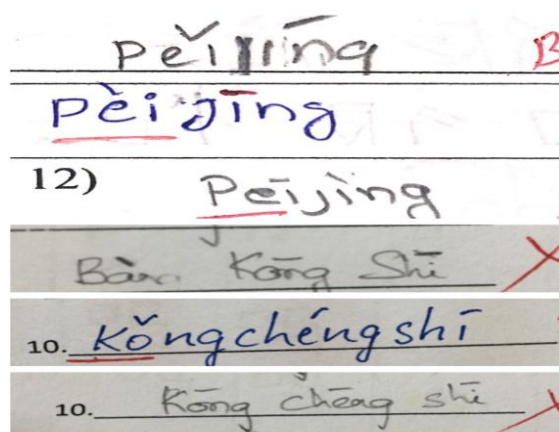 Pěijīng B
Pèijīng
12) Pēijìng
Bàn Kōng Shī
10. Kǒngchéngshī
10. Kōng chēng shī